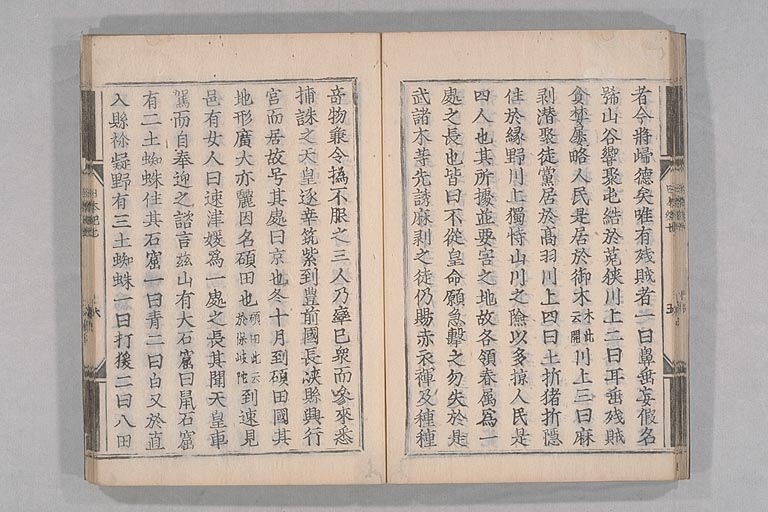 者今將歸德矣唯有残賊者一曰鼻垂妄假名
號山谷響聚屯結於菟狹川上二曰耳垂残賊
貪婪屢略人民是居於御木木此云開川上三曰麻
剥潜聚徒黨居於髙羽川上四曰土折猪折隠
住於緑野川上獨恃山川之險以多掠人民是
四人也其所據並要害之地故各領眷属爲一
處之長也皆曰不從皇命願急擊之勿失於是
武諸木䓁先誘麻剥之徒仍賜赤衣褌及種種
奇物兼令撝不服之三人乃率己衆而參來悉
捕誅之天皇遂幸筑紫到豊前國長峽縣興行
宮而居故号其處曰京也冬十月到碩田國其
地形廣大亦麗因名碩田也碩田此云於保岐陁到速見
邑有女人曰速津媛爲一處之長其聞天皇車
駕而自奉迎之諮言兹山有大石窟曰鼠石窟
有二土蜘蛛住其石窟一曰青二曰白又於直
入縣祢疑野有三土蜘蛛一曰打猨二曰八田